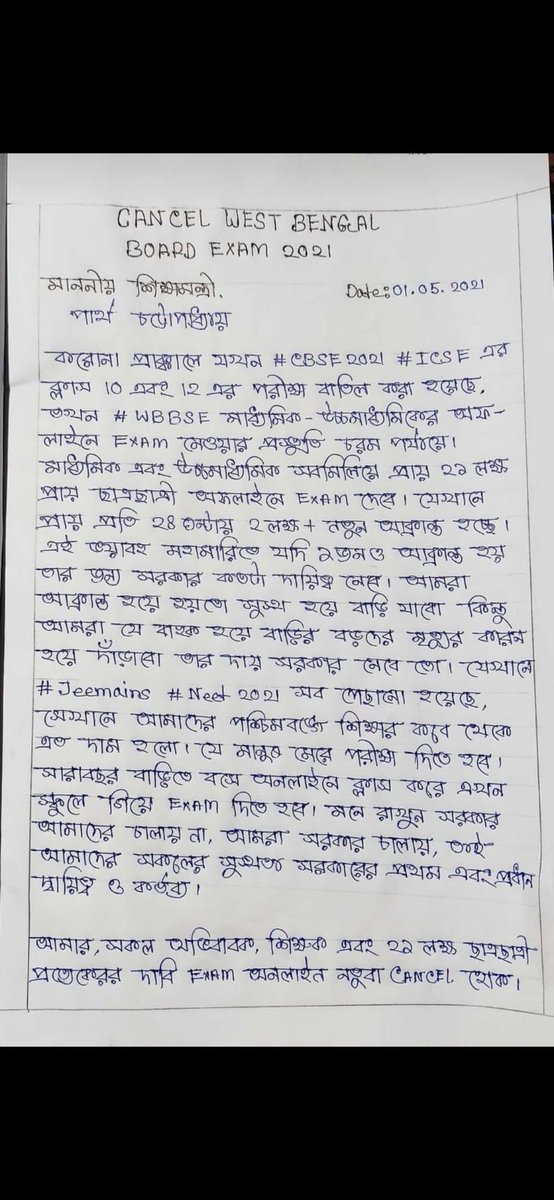 CANCEL WEST BENGAL
BOARD EXAM 2021
মাননীয় শিক্ষামন্ত্রী.
Date:01.05.2021
পার্থ চট্টোপাধ্যায়
করোনা প্রাক্কালে যখন #CBSE2021 #ICSE এর
ক্লাস 10 এবং 12 এর পরীক্ষা বাতিল করা হয়েছে,
তখন #WBBSE মাধ্যমিক-উচ্চমাধ্যমিকের অফ-
লাইনে EXAM নেওয়ার প্রস্তুতি চরম পর্যায়ে।
মাধ্যমিক এবং উচ্চমাধ্যমিক সবমিলিয়ে প্রায় ২১ লক্ষ
প্রায় ছাত্রছাত্রী অফলাইনে EXAM দেবে। যেখানে
প্রায় প্রতি 24 ঘন্টায় 2লক্ষ+ নতুন আক্রান্ত হচ্ছে।
এই ভয়াবহ মহামারিতে যদি ১জনও আক্রান্ত হয়
তার জন্য সরকার কতটা দায়িত্ব নেবে। আমরা
আক্রান্ত হয়ে হয়তো সুস্থ হয়ে বাড়ি যাবো কিন্তু
আমরা যে বাহক হয়ে বাড়ির বড়দের মৃত্যুর কারন
হয়ে দাঁড়াবো তার দায় সরকার নেবে তো। যেখানে
#Jeemains #Neet 2021 সব পেছানো হয়েছে,
সেখানে আমাদের পশ্চিমবঙ্গে শিক্ষার কবে থেকে
এত দাম হলো। যে মানুষ মেরে পরীক্ষা দিতে হবে।
সারাবছর বাড়িতে বসে অনলাইনে ক্লাস করে এখন
স্কুলে গিয়ে EXAM দিতে হবে। মনে রাখুন সরকার
আমাদের চালায় না, আমরা সরকার চালায়, তাই
আমাদের সকলের সুস্থতা সরকারের প্রথম এবং প্রধান
দায়িত্ব ও কর্তব্য।
আমার, সকল অভিভাবক, শিক্ষক এবং ২১ লক্ষ ছাত্রছাত্রী
প্রত্যেকের দাবি EXAM অনলাইন নতুবা CANCEL হোক।